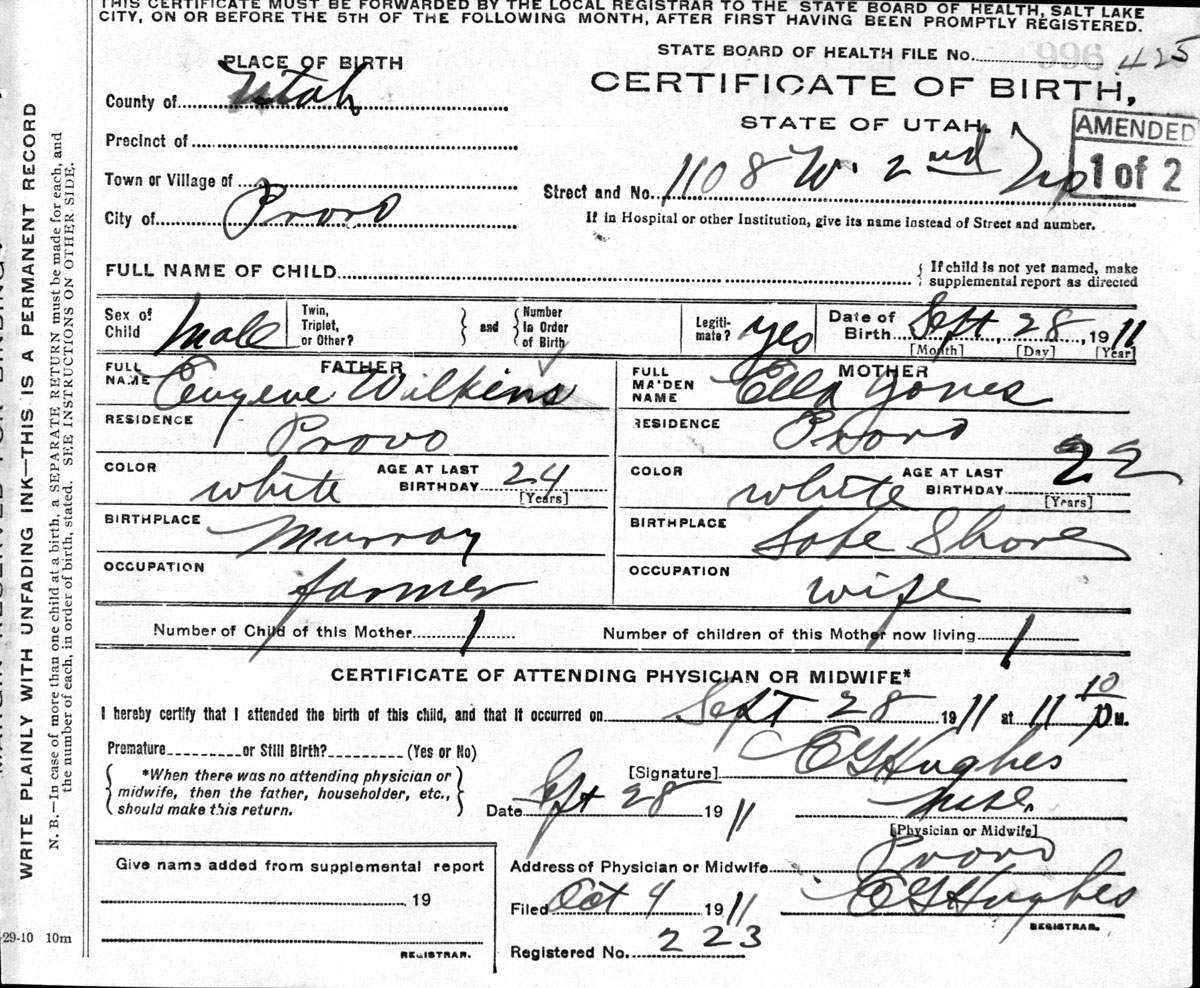 THIS CERTIFICATE MUST BE FORWARDED BY THE LOCAL REGISTRAR TO THE STATE BOARD OF HEALTH, SALT LAKE
CITY, ON OR BEFORE THE 5TH OF THE FOLLOWING MONTH, AFTER FIRST HAVING BEEN PROMPTLY REGISTERED.
STATE BOARD OF HEALTH FILE No. 425
PLACE OF BIRTH
CERTIFICATE OF BIRTH,
County of Utah
STATE OF UTAH.
AMENDED
1 of 2
Precinct of
Town or Village of
Street and No. 1108 W. 2nd
City of Provo
If in Hospital or other Institution, give its name instead of Street and number.
FULL NAME OF CHILD
{ If child is not yet named, make
supplemental report as directed
Sex of Child Male
Twin, Triplet, or Other? } and { Number in Order of Birth
Legiti-mate? yes
Date of Birth Sept, 28, 1911
[Month] [Day] [Year]
FATHER
FULL NAME Eugene Wilkins
MOTHER
FULL MAIDEN NAME Ella Jones
RESIDENCE Provo
RESIDENCE Provo
COLOR white AGE AT LAST BIRTHDAY 24
[Years]
COLOR white AGE AT LAST BIRTHDAY 22
[Years]
BIRTHPLACE Murray
BIRTHPLACE Shore
OCCUPATION farmer
OCCUPATION wife
Number of Child of this Mother 1 Number of children of this Mother now living 1
CERTIFICATE OF ATTENDING PHYSICIAN OR MIDWIFE*
I hereby certify that I attended the birth of this child, and that it occurred on Sept 28 1911 at 11 10 P.M.
Premature or Still Birth? (Yes or No)
{ *When there was no attending physician or
midwife, then the father, householder, etc.,
should make this return. }
[Signature] Hughes
Date Sept 28 1911
[Physician or Midwife]
Give name added from supplemental report
19
REGISTRAR.
Address of Physician or Midwife Provo
Filed Oct 4 1911 Hughes
REGISTRAR.
Registered No. 223
-29-10 10m
WRITE PLAINLY WITH UNFADING INK—THIS IS A PERMANENT RECORD
N. B.—In case of more than one child at a birth, a SEPARATE RETURN must be made for each, and
the number of each, in order of birth, stated. SEE INSTRUCTIONS ON OTHER SIDE.